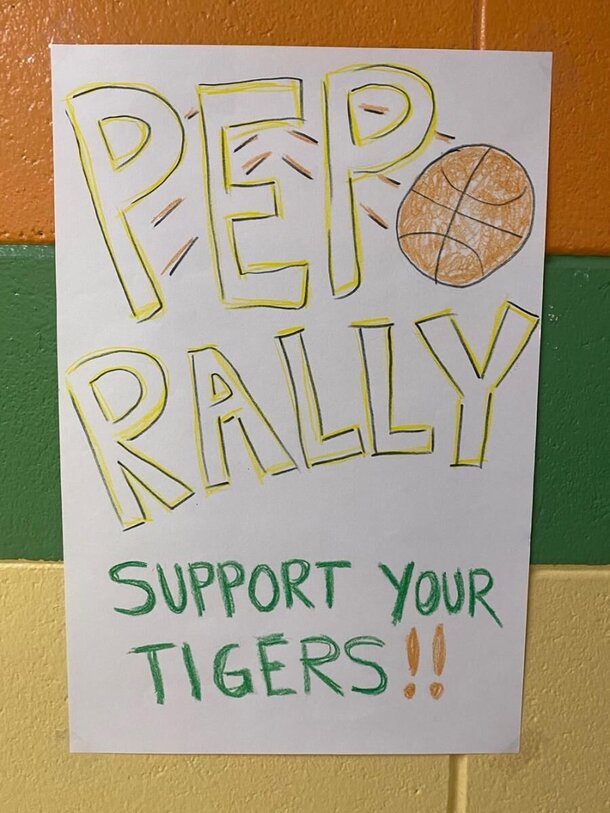 PEP
RALLY
SUPPORT YOUR
TIGERS!!